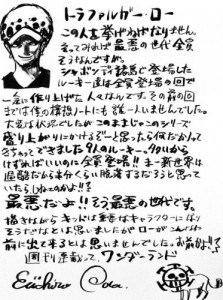 トラファルガー・ロー
この人を挙げねばなりません。
そってれば最悪の世代全員
そうなんですが。
シャボンディ諸島で登場した
ルーキー達は全員登場の回で
一気に作り上げた人々なんです。その前の回
までは僕の構想ノートにも誰一人いませんでした。
大変な状況でしたがこのままじゃこのシリーズ
盛り上がりにかける！！と思ったら何だかんだ
きちゃってできました9人のルーキー。
すればいいのに全員登場！！まー新世界は
過酷だから半分くらい脱落するだろうと思って
いたらしねェのかよ!!
最悪だよ!!そう最悪の世代です。
描きながらキッドは重要なキャラクターになり
そうだなとは思いましたがローがこんなに
前に出て来るとは思いませんでした。お前かよ!!
週刊連載って、ワンダーランド
Eiichiro Oda.